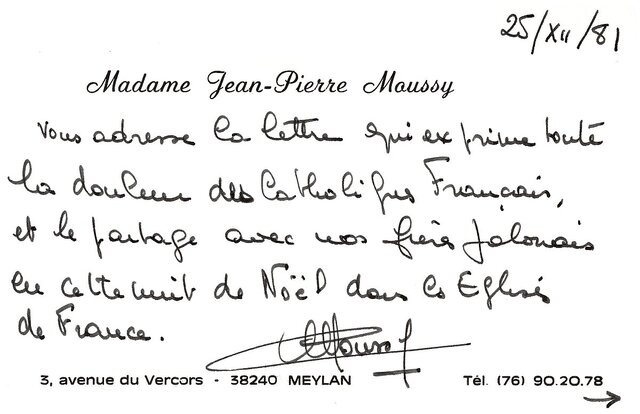 25/XII/81
Madame Jean-Pierre Moussy
vous adresse la lettre qui exprime toute
la douleur des Catholiques Français,
et le partage avec nos frères polonais
en cette nuit de Noël dans les Eglises
de France.
Moussy
3, avenue du Vercors - 38240 MEYLAN Tél. (76) 90.20.78